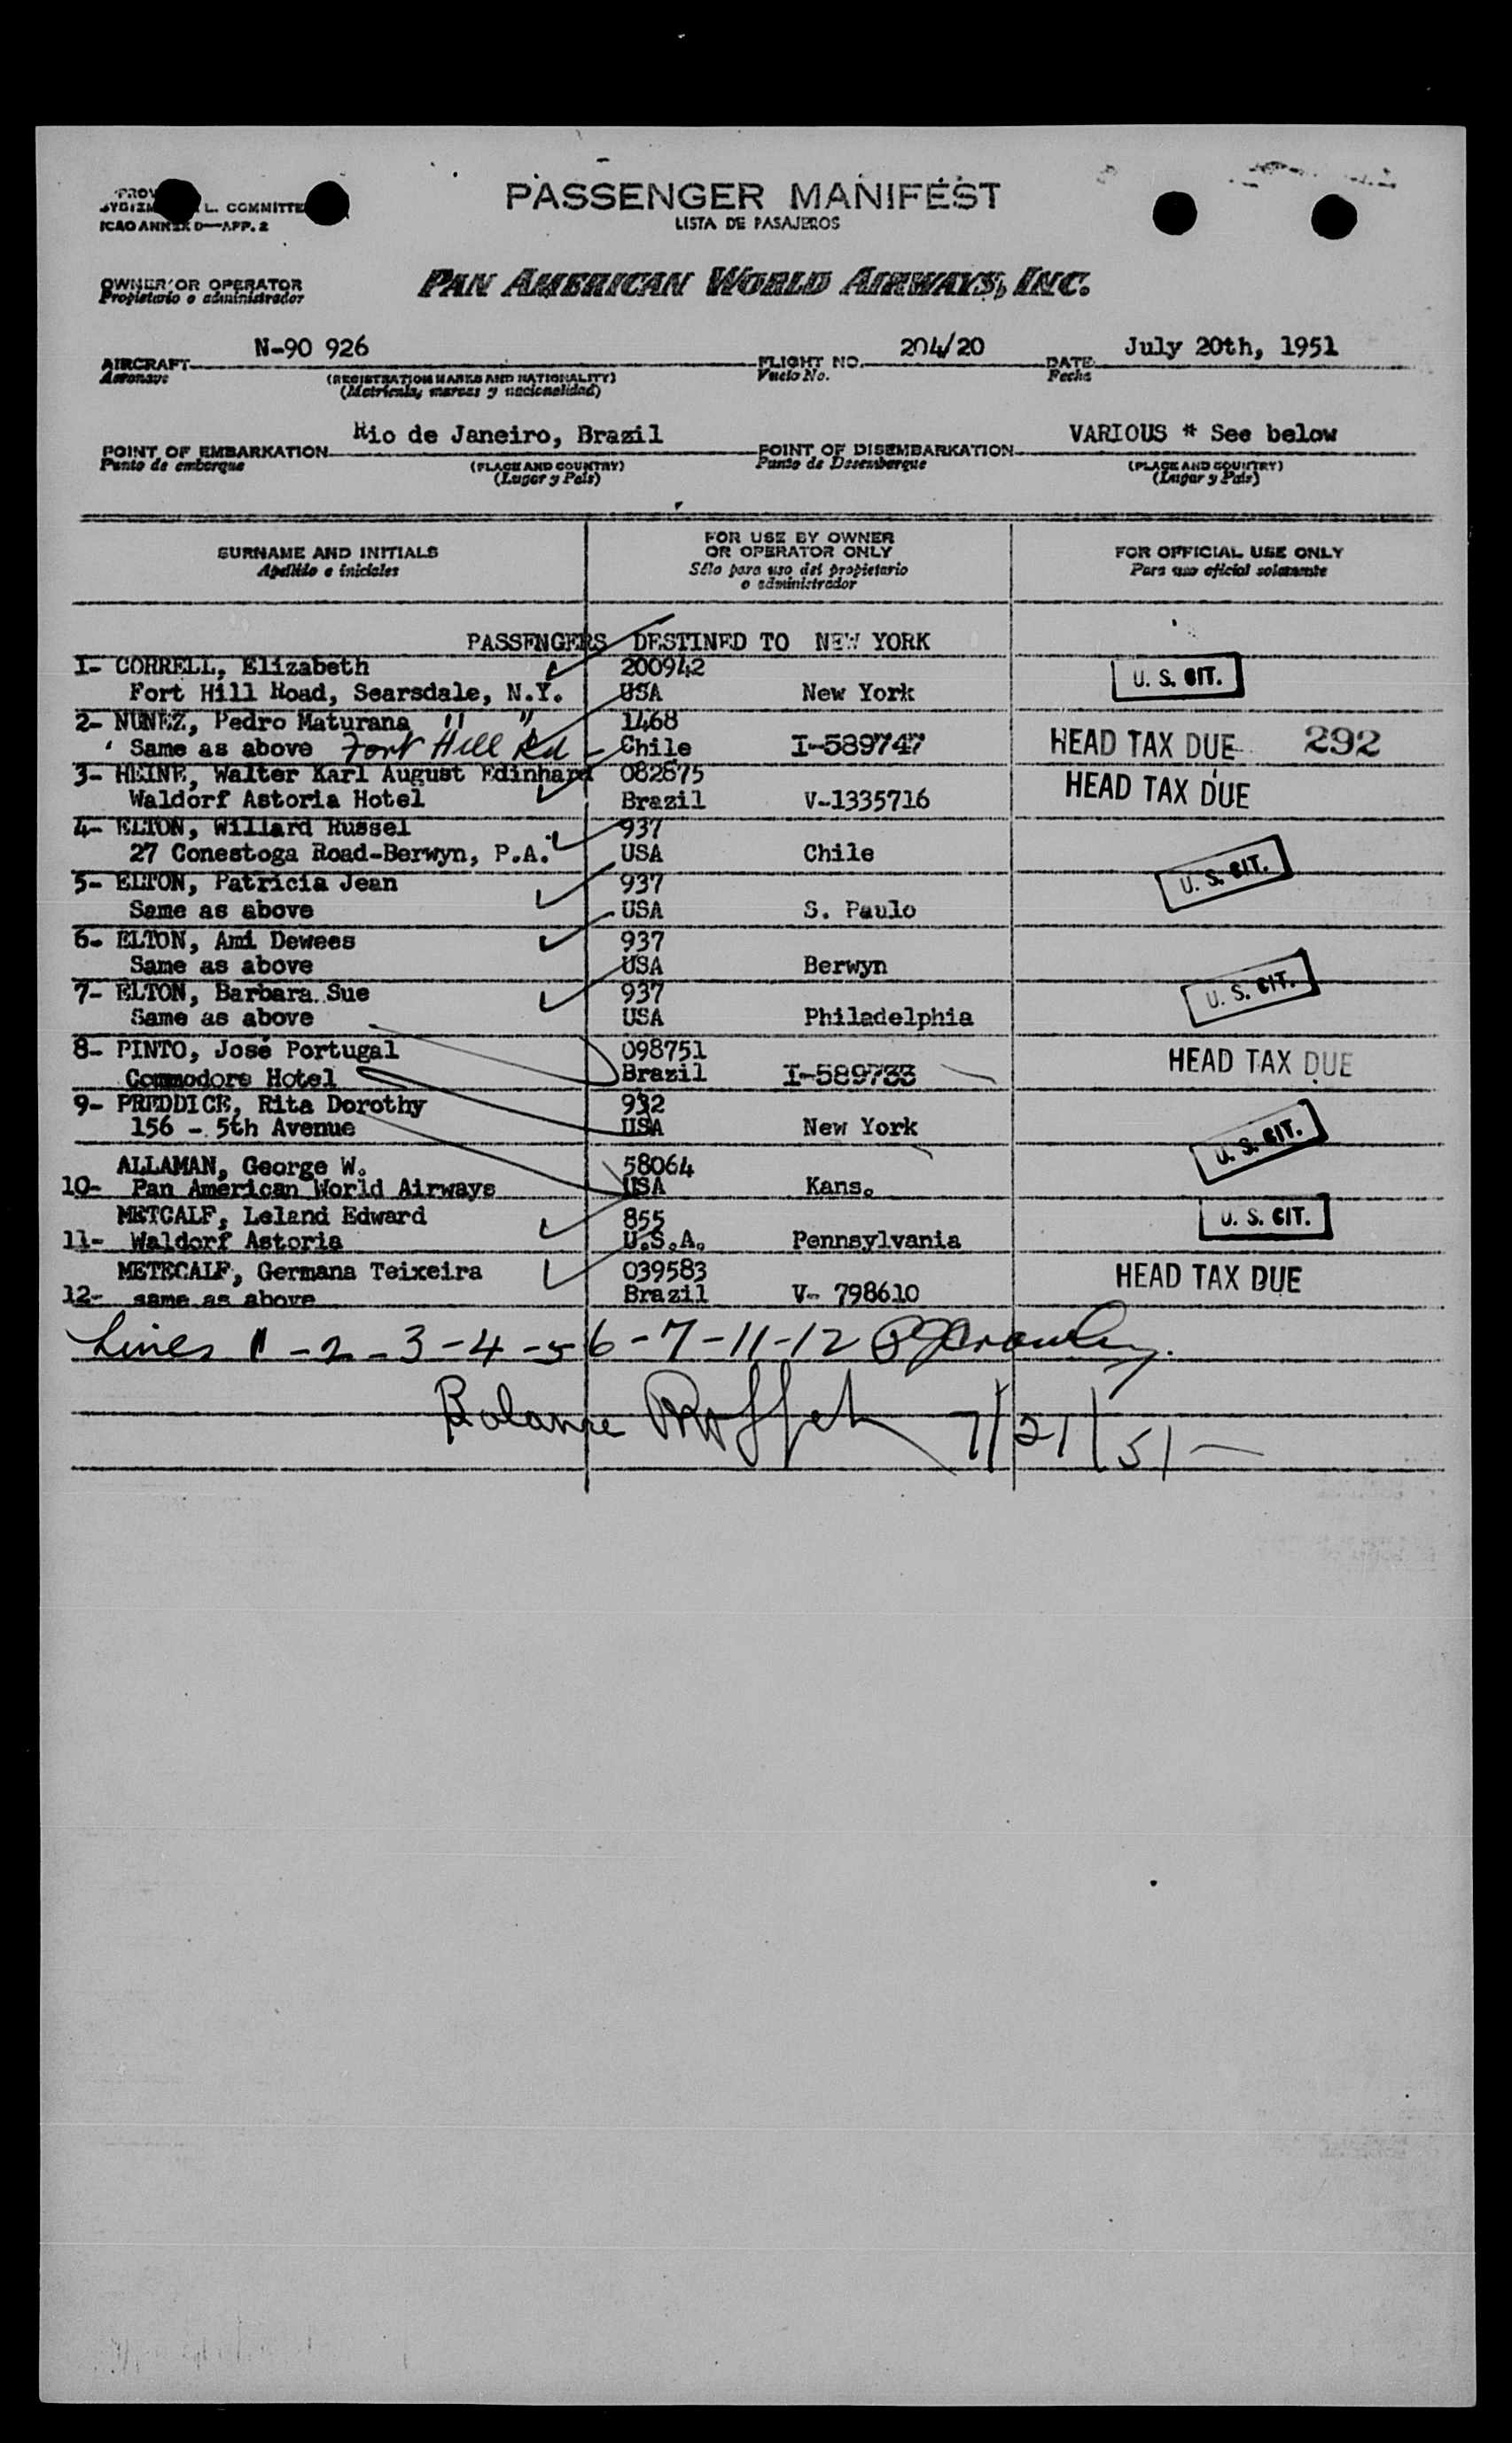 PASSENGER MANIFEST
LISTA DE PASAJEROS
L. COMMITTE
ICAO ANNEX D—APP. 2
OWNER OR OPERATOR
Propietario o administrador
PAN AMERICAN WORLD AIRWAYS, INC.
AIRCRAFT N-90 926 FLIGHT NO. 204/20 DATE July 20th, 1951
Aeronave (REGISTRATION MARKS AND NATIONALITY) Vuelo No. Fecha
(Matrícula, marcas y nacionalidad)
POINT OF EMBARKATION Rio de Janeiro, Brazil POINT OF DISEMBARKATION VARIOUS * See below
Punto de embarque (PLACE AND COUNTRY) Punto de Desembarque (PLACE AND COUNTRY)
(Lugar y País) (Lugar y País)
SURNAME AND INITIALS
Apellido e iniciales
FOR USE BY OWNER
OR OPERATOR ONLY
Sólo para uso del propietario
o administrador
FOR OFFICIAL USE ONLY
Para uso oficial solamente
PASSENGERS DESTINED TO NEW YORK
1- CORRELL, Elizabeth 200942
Fort Hill Road, Searsdale, N.Y. USA New York U. S. CIT.
2- NUNEZ, Pedro Maturana " " 1468
Same as above Fort Hill Rd Chile I-589747 HEAD TAX DUE 292
3- HEINE, Walter Karl August Edinhard 082875
Waldorf Astoria Hotel Brazil V-1335716 HEAD TAX DUE
4- ELTON, Willard Russel 937
27 Conestoga Road-Berwyn, P.A. USA Chile
5- ELTON, Patricia Jean 937 U. S. CIT.
Same as above USA S. Paulo
6- ELTON, Ami Dewees 937
Same as above USA Berwyn
7- ELTON, Barbara Sue 937 U. S. CIT.
Same as above USA Philadelphia
8- PINTO, José Portugal 098751
Commodore Hotel Brazil I-589733 HEAD TAX DUE
9- PREDDICE, Rita Dorothy 932
156 - 5th Avenue USA New York U. S. CIT.
ALLAMAN, George W. 58064
10- Pan American World Airways USA Kans.
METCALF, Leland Edward 855 U. S. CIT.
11- Waldorf Astoria U.S.A. Pennsylvania
METECALF, Germana Teixeira 039583
12- same as above Brazil V- 798610 HEAD TAX DUE
Lines 1-2-3-4-5-6-7-11-12
Balance 7/21/51